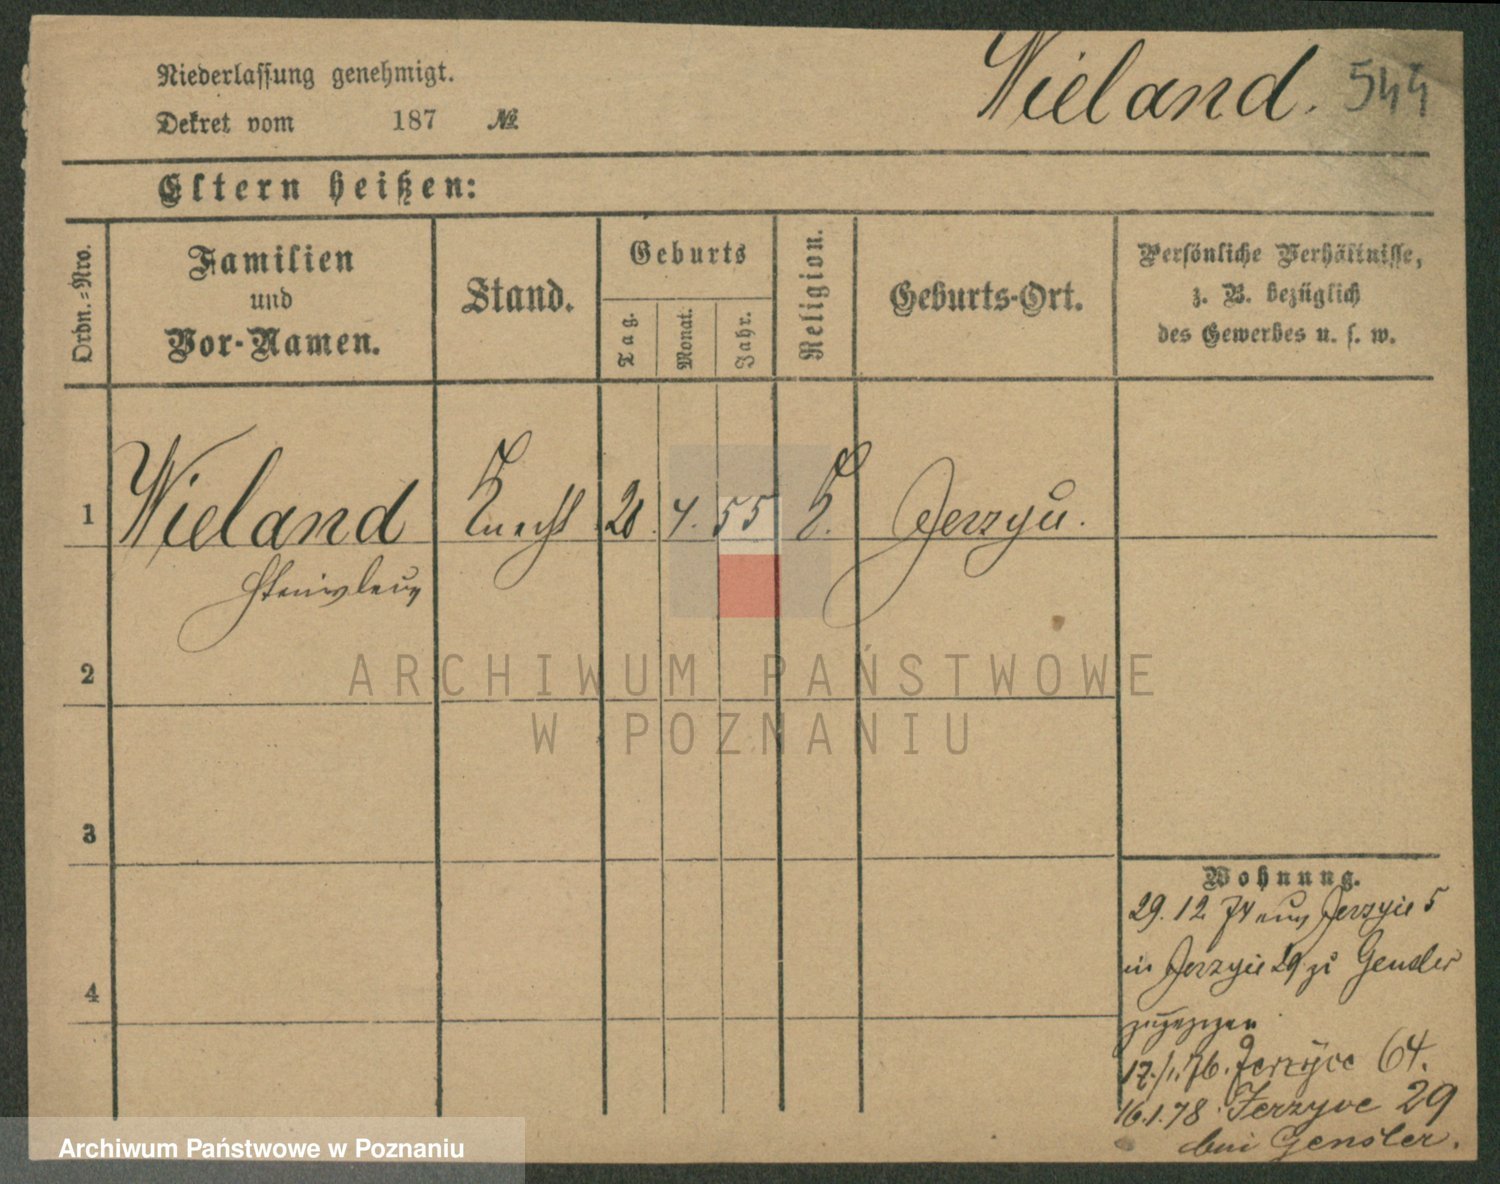 Niederlassung genehmigt.
Wieland. 544
Dekret vom 187 №
Eltern heißen:
Ordn.=Nro.
Familien
und
Vor-Namen.
Stand.
Geburts
Tag.
Monat.
Jahr.
Religion.
Geburts-Ort.
Persönliche Verhältnisse,
z. B. bezüglich
des Gewerbes u. s. w.
1 Wieland Knecht 20. 4. 55 K. Jerzyce.
Stanislaus
2
ARCHIWUM PAŃSTWOWE
W POZNANIU
3
4
Wohnung.
29. 12 74 aus Jerzyce 5
in Jerzyce 29 zu Gensler
zugezogen
17./1.76. Jerzyce 64.
16.1.78 Jerzyce 29
bei Gensler.
Archiwum Państwowe w Poznaniu